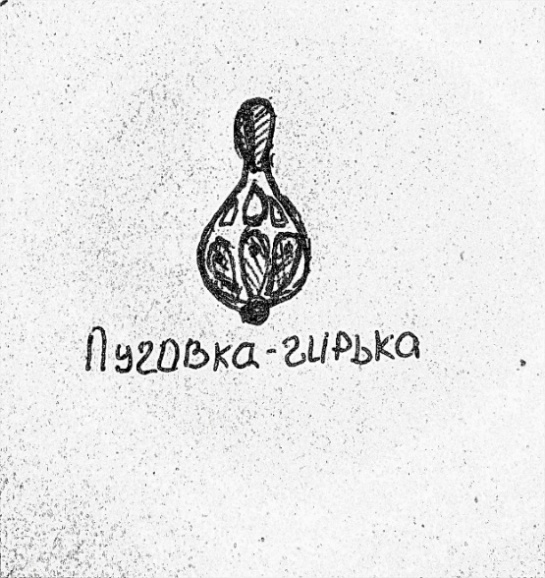 Пуговка-гирька